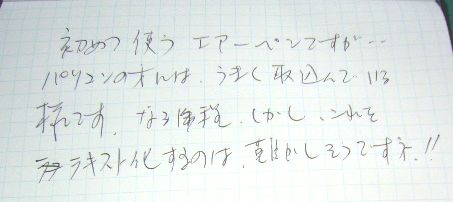 初めて使うエアーペンですが…
パソコンの方には、うまく取込んでいる
様です。なる程。しかし、これを
テキスト化するのは、難かしそうですネ!!